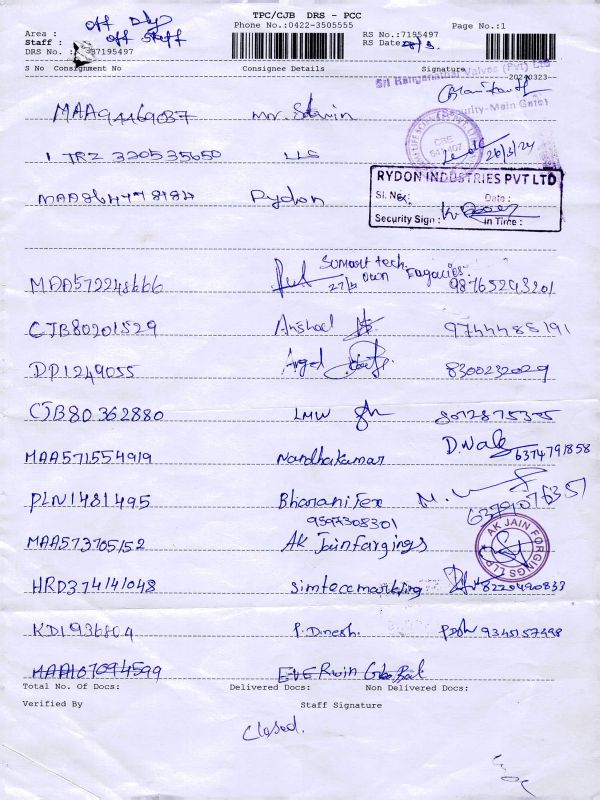 TPC/CJB DRS - PCC
Phone No.:0422-3505555
Page No.:1
Area : Off Day
Staff : Off Staff
DRS No. : 37195497
RS No.:7195497
RS Date:
S No Consignment No Consignee Details Signature
Sri Ranganathar Valves (Pvt) Ltd
20240323
Security-Main Gate
MAA94469037 Mr. Edwin
1 TRZ 320535650 LLS
26/3/24
641407
RYDON INDUSTRIES PVT LTD
Sl. No: Date :
Security Sign : In Time :
MAA864478184 Rydon
Sumoort tech
27/3 own Engacies.
MAA572248666 98765293201
CJB80201529 Anshad 9744485191
DP1249055 Angel 8300232029
CJB80362880 LMW
MAA571554919 Nandhakumar 6374791858
PLN1481495 Bharani Tex 6379076357
9597308301
MAA573705152 AK Jain forgings
AK JAIN FORGINGS LLP
HRD374141048 Simtece marking 8220490833
KD1936804 P. Dinesh. 9345157498
MAA107094599 EVERwin Global
Total No. Of Docs: Delivered Docs: Non Delivered Docs:
Verified By Staff Signature
Closed.